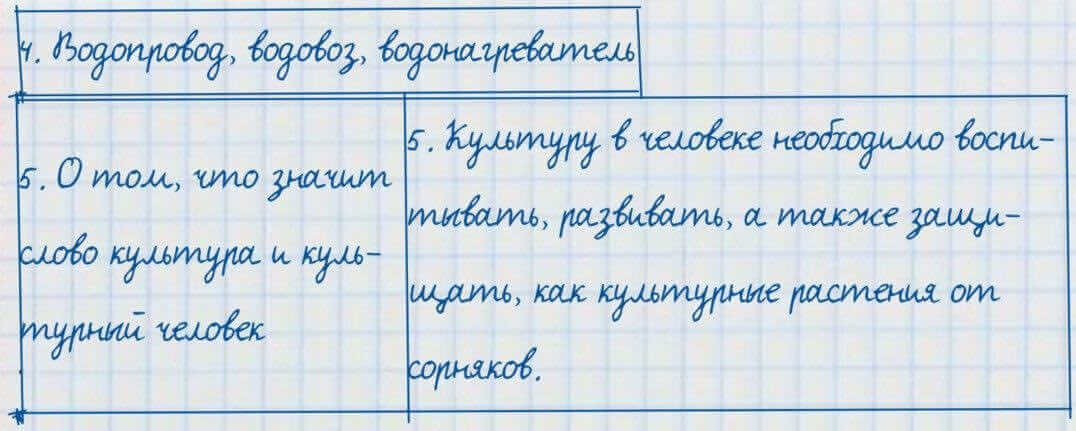 4. Водопровод, водовоз, водонагреватель
5. О том, что значит
слово культура и куль-
турный человек
5. Культуру в человеке необходимо воспи-
тывать, развивать, а также защи-
щать, как культурные растения от
сорняков.